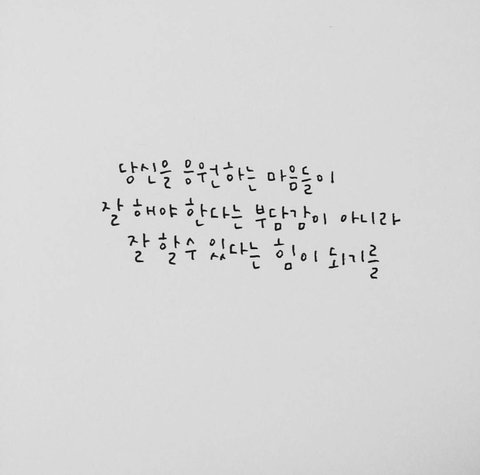 당신을 응원하는 마음들이
잘 해야 한다는 부담감이 아니라
잘 할수 있다는 힘이 되기를